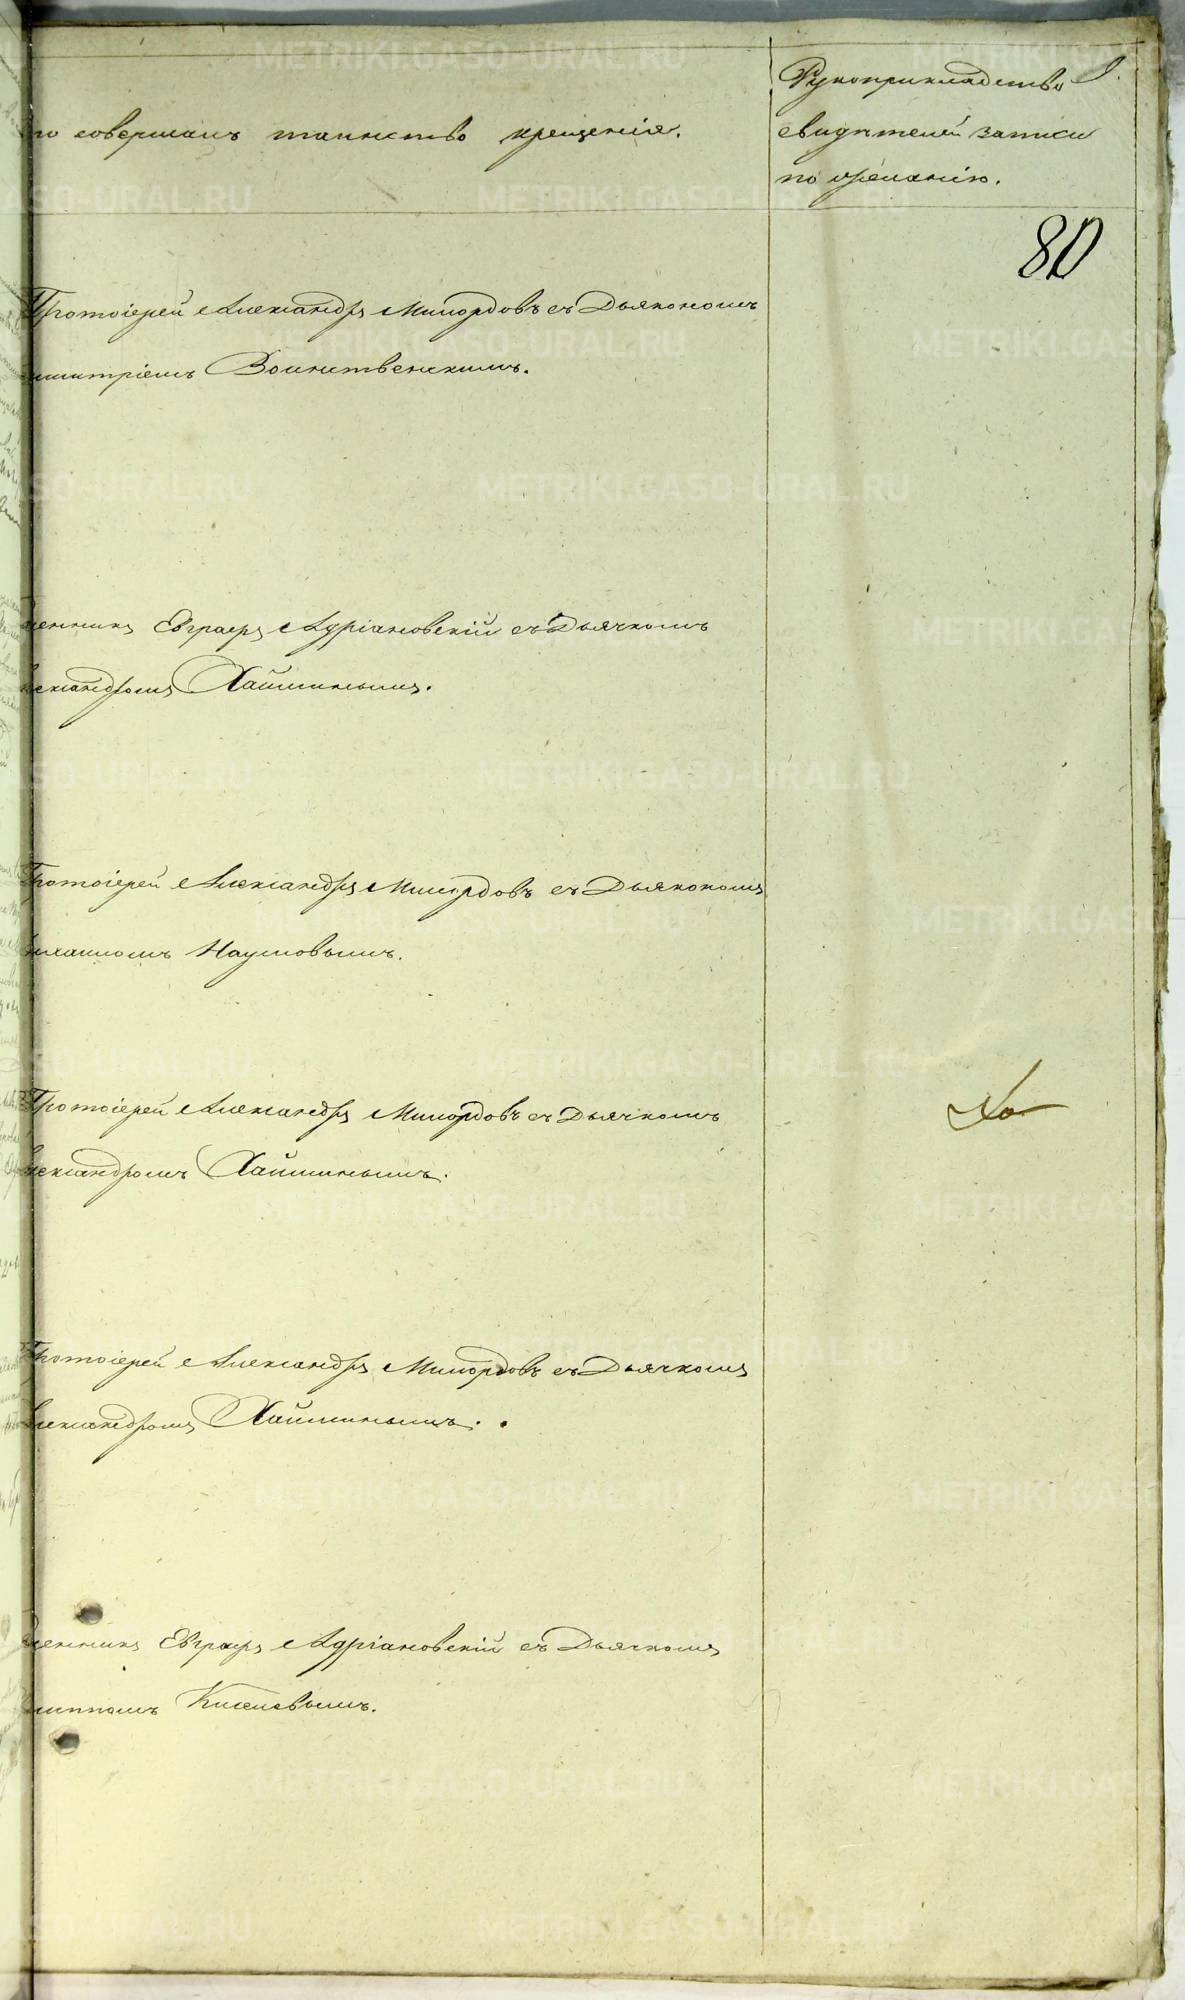 то совершалъ таинство крещенія.
Рукоприкладство
свидѣтелей записи
по желанію.
80
Протоіерей Александръ Милордовъ съ Дьякономъ
имитріемъ Воинственскимъ.
щенникъ Евграфъ Адріановскій съ Дьячкомъ
лександромъ Хайминымъ.
Протоіерей Александръ Милордовъ съ Дьякономъ
ихаиломъ Наумовымъ.
Протоіерей Александръ Милордовъ съ Дьячкомъ
лександромъ Хайминымъ.
Протоіерей Александръ Милордовъ съ Дьячкомъ
Александромъ Хайминымъ.
щенникъ Евграфъ Адріановскій съ Дьячкомъ
илиппомъ Киселевымъ.
METRIKI.GASO-URAL.RU